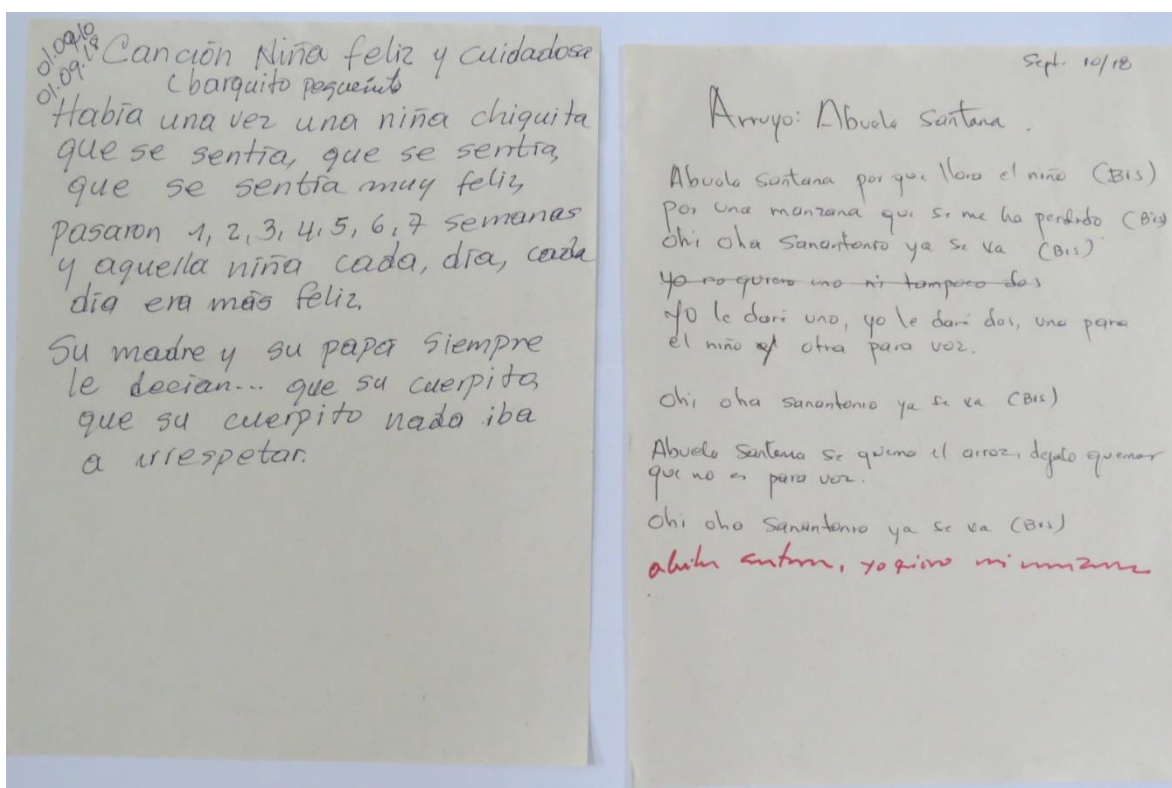 01.09.18
Canción Niña feliz y cuidadosa
(barquito pequeñito
Había una vez una niña chiquita
que se sentía, que se sentía,
que se sentía muy feliz,
pasaron 1, 2, 3, 4, 5, 6, 7 semanas
y aquella niña cada, día, cada
día era más feliz.
Su madre y su papá siempre
le decían... que su cuerpito,
que su cuerpito nada iba
a irrespetar.
Sept. 10/18
Arruyo: Abuela Santana.
Abuela Santana por que llora el niño (Bis)
por una manzana que se me ha perdido (Bis)
Ohi oha Sanantonio ya se va (Bis)
yo no quiero uno ni tampoco dos
Yo le daré uno, yo le daré dos, una para
el niño y otra para voz.
Ohi oha sanantonio ya se va (Bis)
Abuela Santana se quemo el arroz, dejalo quemar
que no es para voz.
Ohi oha Sanantonio ya se va (Bis)
yo quiero mi manzana